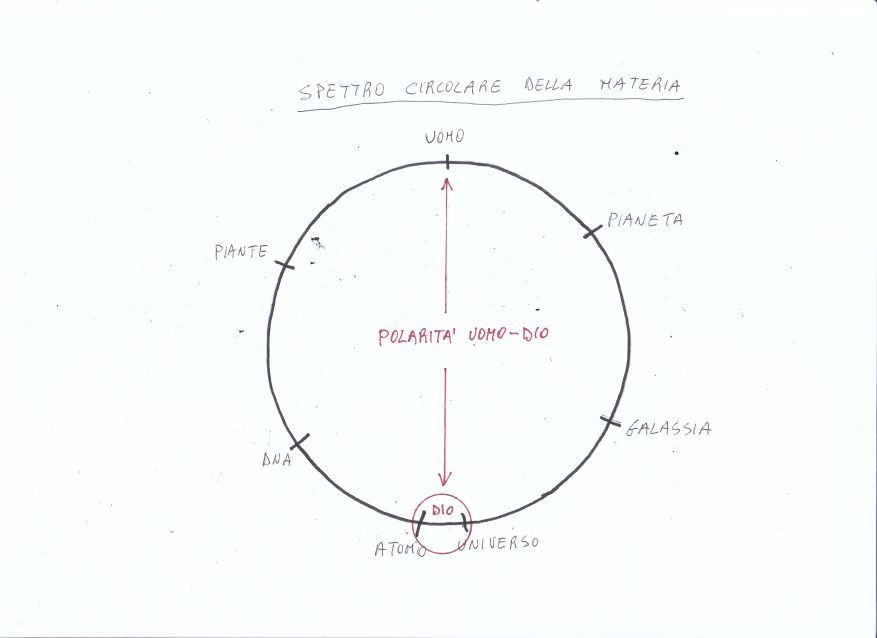 SPETTRO CIRCOLARE DELLA MATERIA
UOMO
PIANETA
PIANTE
POLARITA' UOMO-DIO
GALASSIA
DNA
DIO
ATOMO
UNIVERSO